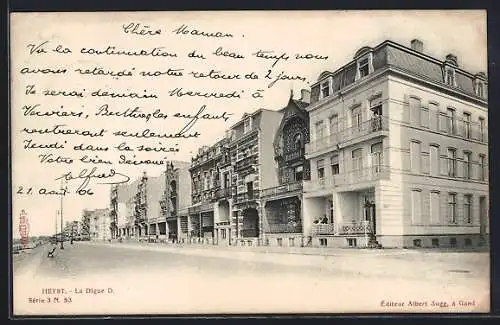 Chère Maman.
Vu la continuation du beau temps nous
avons retardé notre retour de 2 jours.
Je serai demain Mercredi à
Verviers, Berthe & les enfants
rentreront seulement
Jeudi dans la soirée
Votre bien dévoué
Alfred
21 août 06
HEYST. - La Digue D.
Série 3 N. 53
Éditeur Albert Sugg, à Gand